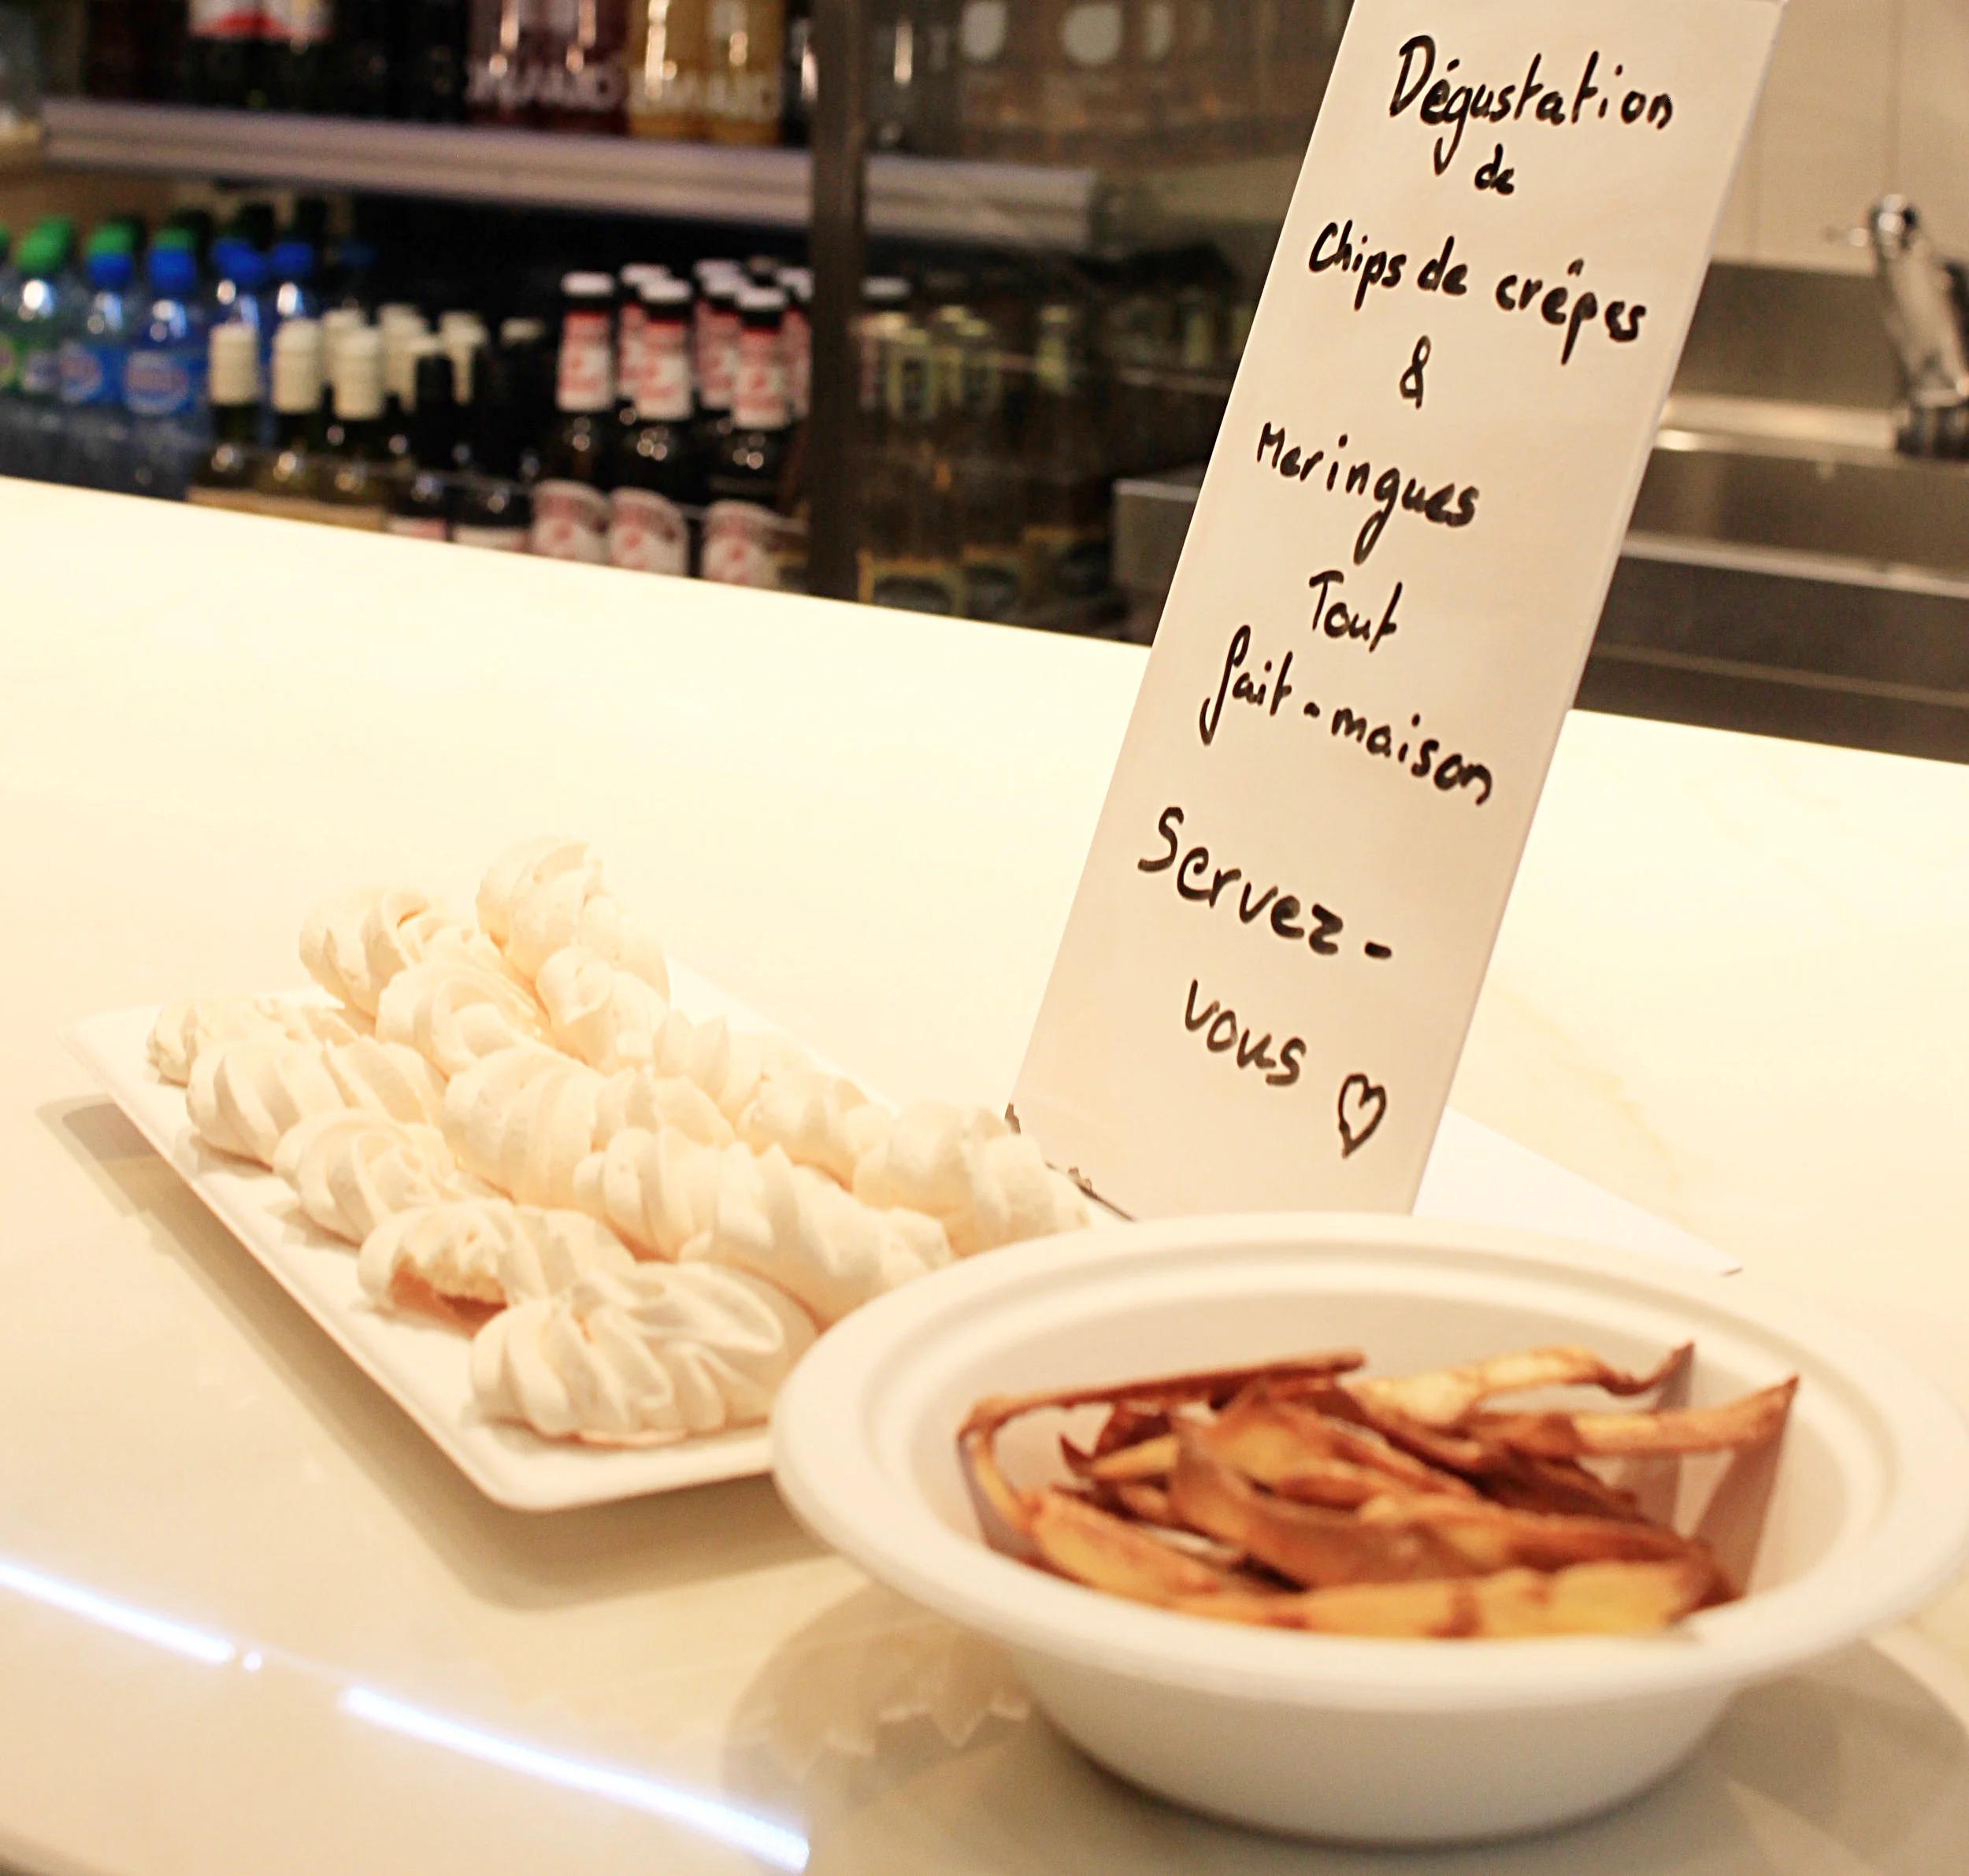 Dégustation
de
Chips de crêpes
&
Meringues
Tout
fait-maison
Servez-
vous ♡